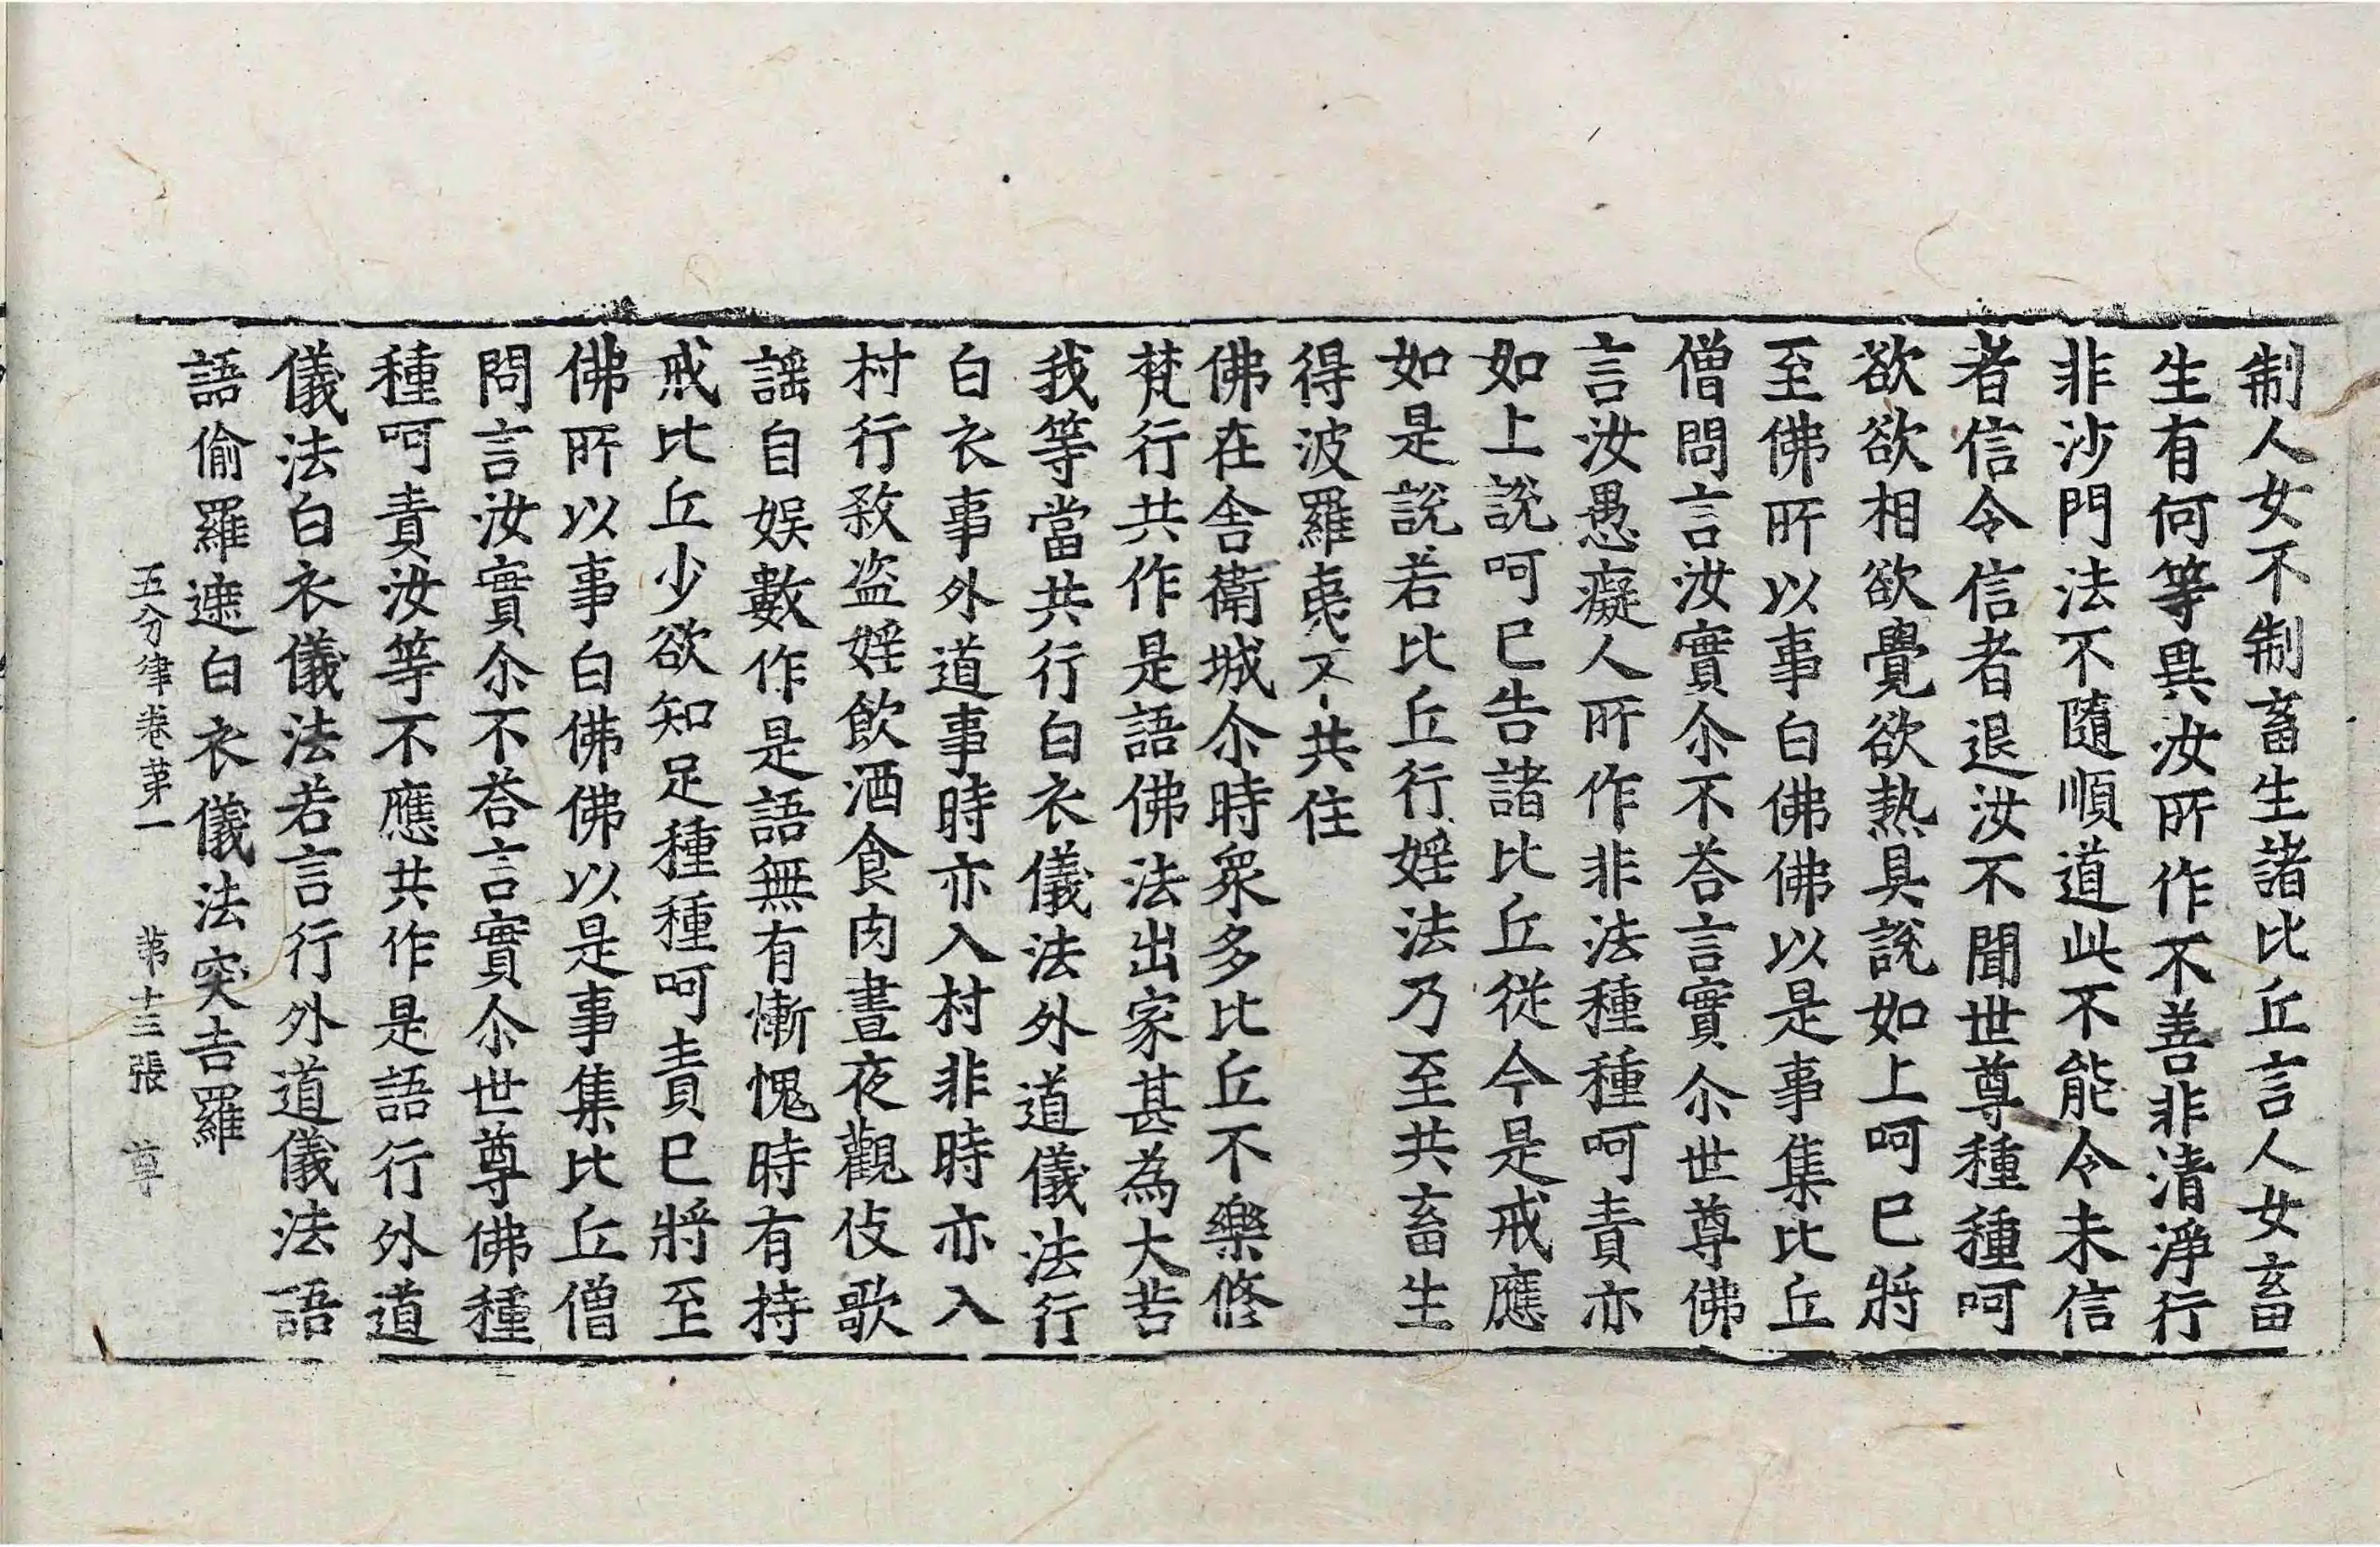 制人女不制畜生諸比丘言人女畜
生有何等異汝所作不善非清淨行
非沙門法不隨順道此不能令未信
者信令信者退汝不聞世尊種種呵
欲欲相欲覺欲熱具說如上呵已將
至佛所以事白佛佛以是事集比丘
僧問言汝實尒不荅言實尒世尊佛
言汝愚癡人所作非法種種呵責亦
如上說呵已告諸比丘從今是戒應
如是說若比丘行婬法乃至共畜生
得波羅夷不共住
佛在舍衛城尒時衆多比丘不樂修
梵行共作是語佛法出家甚為大苦
我等當共行白衣儀法外道儀法行
白衣事外道事時亦入村非時亦入
村行殺盗婬飲酒食肉晝夜觀伎歌
謡自娱數作是語無有慚愧時有持
戒比丘少欲知足種種呵責已將至
佛所以事白佛佛以是事集比丘僧
問言汝實尒不荅言實尒世尊佛種
種呵責汝等不應共作是語行外道
儀法白衣儀法若言行外道儀法語
語偷羅遮白衣儀法突吉羅
五分律卷第一 第十三張 尊